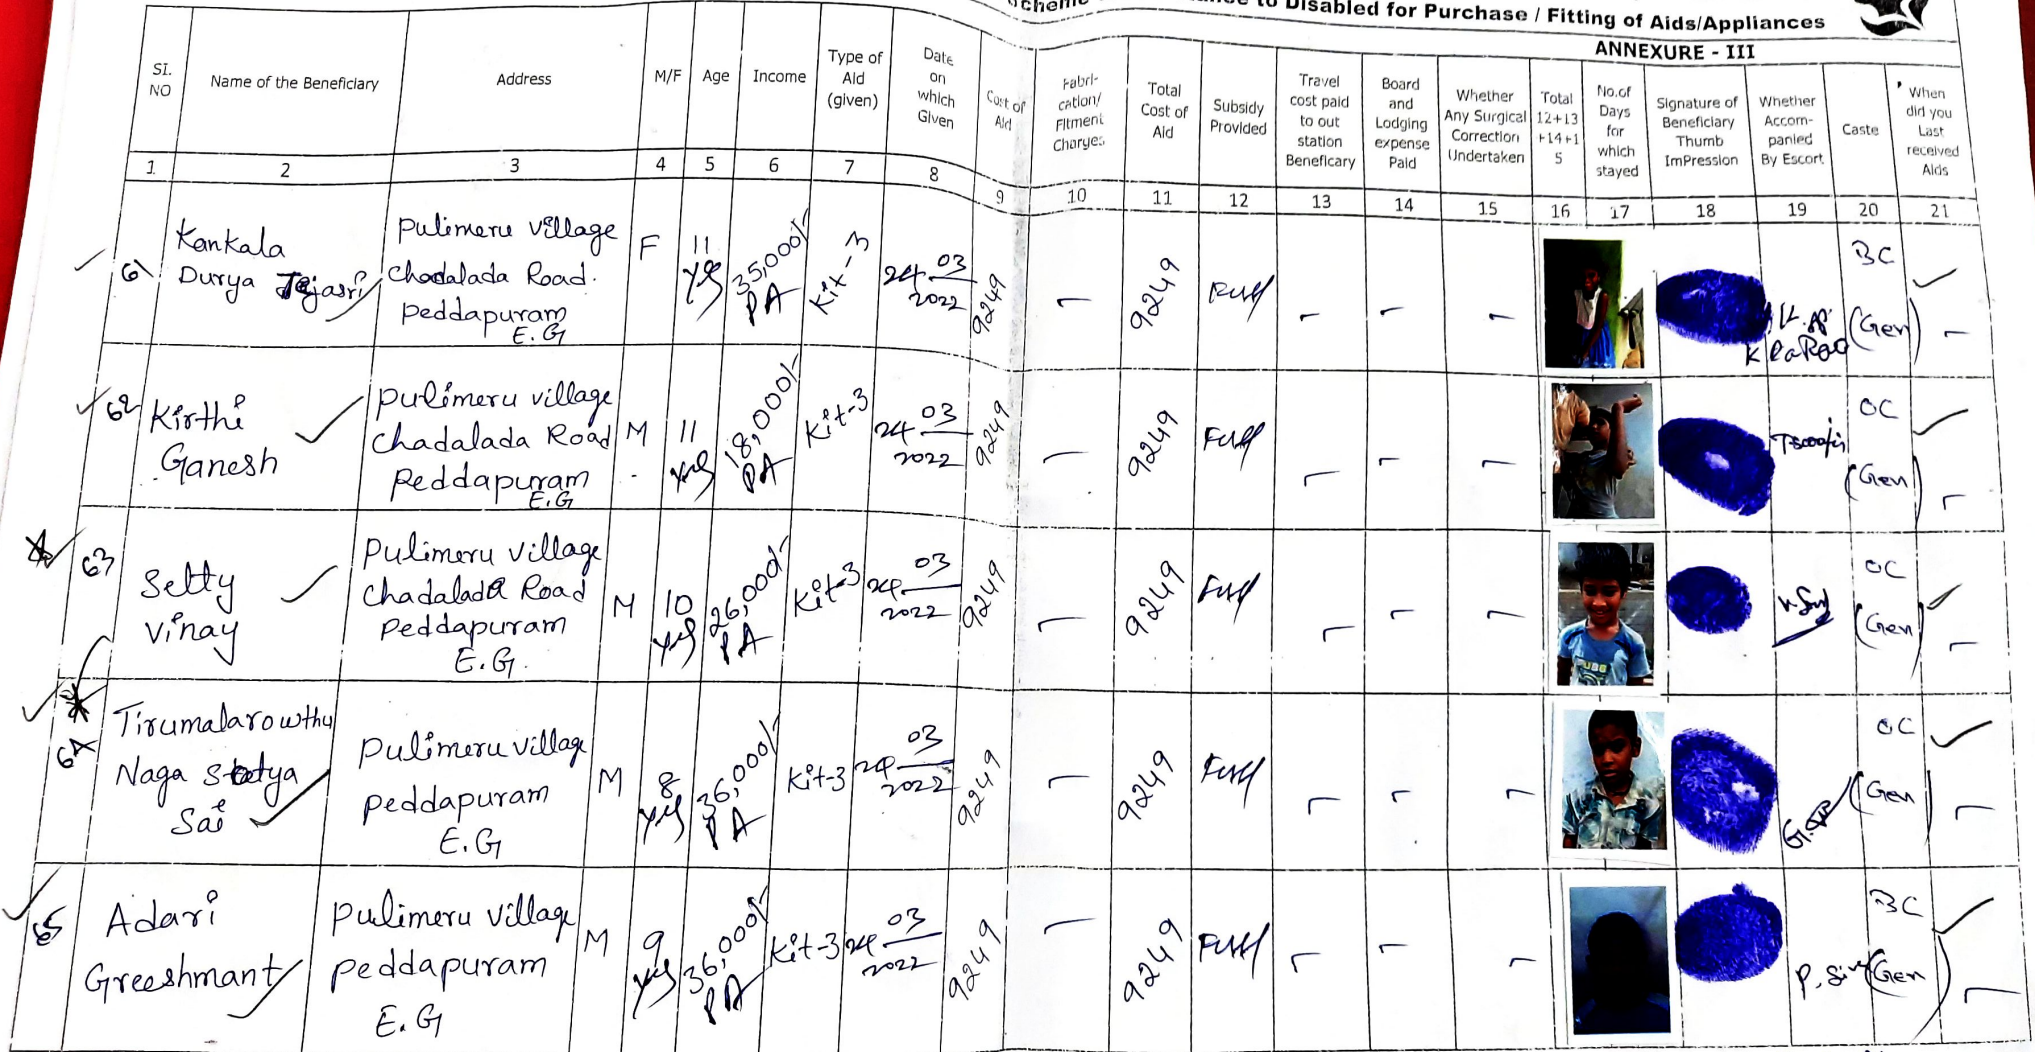 to Disabled for Purchase / Fitting of Aids/Appliances
ANNEXURE - III
SI. NO
Name of the Beneficiary
Address
M/F
Age
Income
Type of Aid (given)
Date on which Given
Cost of Aid
Fabri-cation/ Fitment Charges
Total Cost of Aid
Subsidy Provided
Travel cost paid to out station Beneficary
Board and Lodging expense Paid
Whether Any Surgical Correction Undertaken
Total 12+13 +14+1 5
No.of Days for which stayed
Signature of Beneficiary Thumb ImPression
Whether Accom-panied By Escort
Caste
When did you Last received Aids
1 2 3 4 5 6 7 8 9 10 11 12 13 14 15 16 17 18 19 20 21
61
Kankala
Durya Tejasri
Pulimeru village
Chadalada Road.
Peddapuram
E.G
F
11 yrs
35,000/- PA
Kit-3
24 03 2022
9249
—
9249
Full
—
—
—
BC
(Gen)
—
62
Kirthi
Ganesh
Pulimeru village
Chadalada Road
Peddapuram
E.G
M
11 yrs
18,000/- PA
Kit-3
24 03 2022
9249
—
9249
Full
—
—
—
OC
(Gen)
—
63
Setty
Vinay
Pulimeru village
Chadalada Road
Peddapuram
E.G.
M
10 yrs
26,000/- PA
Kit-3
24 03 2022
9249
—
9249
Full
—
—
—
PUBG
OC
(Gen)
—
64
Tirumalarowthu
Naga Satya
Sai
Pulimeru village
Peddapuram
E.G
M
8 yrs
36,000/- PA
Kit-3
24 03 2022
9249
—
9249
Full
—
—
—
OC
(Gen)
—
65
Adari
Greeshmant
Pulimeru village
Peddapuram
E.G
M
9 yrs
36,000/- PA
Kit-3
24 03 2022
9249
—
9249
Full
—
—
—
BC
P. Siva
(Gen)
—